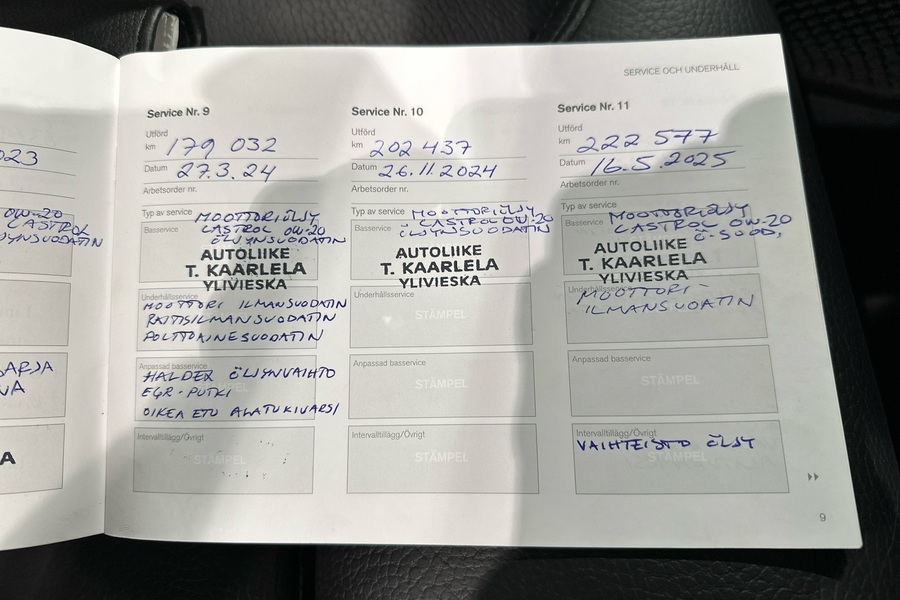 023
0W-20
CASTROL
ARJA
VA
A
SERVICE OCH UNDERHÅLL
Service Nr. 9
Utförd
km 179 032
Datum 27.3.24
Arbetsorder nr.
Typ av service MOOTTORIÖLJY
Basservice CASTROL 0W-20
ÖLJYNSUODATIN
AUTOLIIKE
T. KAARLELA
YLIVIESKA
Underhållsservice
MOOTTORI ILMANSUODATIN
RAITISILMANSUODATIN
POLTTOAINESUODATIN
Anpassad basservice
HALDEX ÖLJYNVAIHTO
EGR-PUTKI
OIKEA ETU ALATUKIVARSI
Intervalltillägg/Övrigt
STÄMPEL
Service Nr. 10
Utförd
km 202 437
Datum 26.11.2024
Arbetsorder nr.
Typ av service MOOTTORIÖLJY
Basservice CASTROL 0W-20
ÖLJYNSUODATIN
AUTOLIIKE
T. KAARLELA
YLIVIESKA
Underhållsservice
STÄMPEL
Anpassad basservice
STÄMPEL
Intervalltillägg/Övrigt
STÄMPEL
Service Nr. 11
Utförd
km 222 577
Datum 16.5.2025
Arbetsorder nr.
Typ av service MOOTTORIÖLJY
Basservice CASTROL 0W-20
Ö-SUOD,
AUTOLIIKE
T. KAARLELA
YLIVIESKA
Underhållsservice
MOOTTORI-
ILMANSUOATIN
Anpassad basservice
STÄMPEL
Intervalltillägg/Övrigt
VAIHTEISTO ÖLJY
STÄMPEL
9